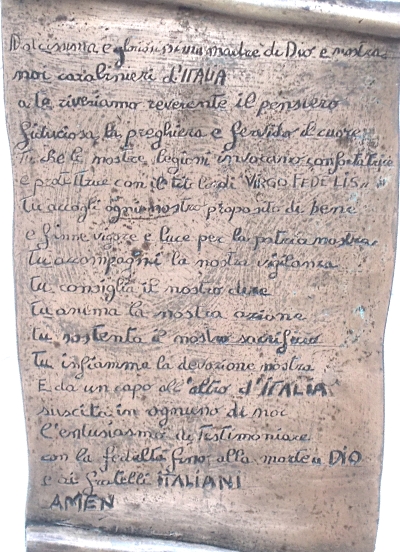 Dolcissima e gloriosissima madre di Dio e nostra
noi carabinieri d'ITALIA
a te riveriamo reverente il pensiero
fiduciosa la preghiera e fervido il cuore
Tu che le nostre legioni invocano confortatrice
e protettrice con il titolo di "VIRGO FEDELIS"
tu accogli ogni nostro proposito di bene
e fanne vigore e luce per la patria nostra
tu accompagni la nostra vigilanza
tu consiglia il nostro dire
tu anima la nostra azione
tu sostenta il nostro sacrificio
tu infiamma la devozione nostra
E da un capo all'altro d'ITALIA
suscita in ognuno di noi
l'entusiasmo di testimoniare
con la fedeltà fino alla morte a DIO
e ai fratelli ITALIANI
AMEN